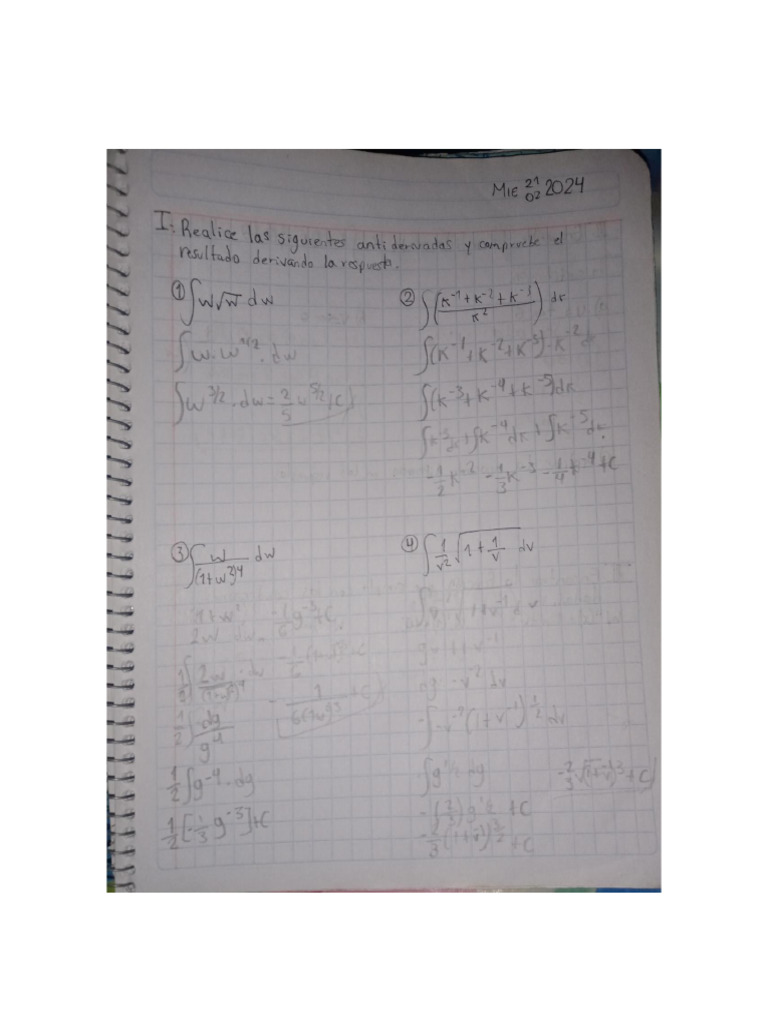 MIE 21 02 2024
I: Realice las siguientes antiderivadas y compruebe el
resultado derivando la respuesta.
① ∫w√w dw
∫w·w^1/2 · dw
∫w^3/2 · dw = 2/5 w^5/2 + C
② ∫(k^-1 + k^-2 + k^-3 / k^2) dk
∫(k^-1 + k^-2 + k^-3) · k^-2 dk
∫(k^-3 + k^-4 + k^-5) dk
∫k^-3 dk + ∫k^-4 dk + ∫k^-5 dk
-1/2 k^-2 - 1/3 k^-3 - 1/4 k^-4 + C
③ ∫ w/(1+w^2)^4 dw
1+w^2
2w dw
1/2 ∫ 2w/(1+w^2)^4 dw
1/2 ∫ dg/g^4
1/2 ∫g^-4 · dg
1/2 [-1/3 g^-3] + C
-1/6 g^-3 + C
④ ∫ 1/v^2 √(1 + 1/v) dv
g = 1 + v^-1
-v^-2 dv
-∫-v^-2 (1 + v^-1)^1/2 dv
∫g^1/2 dg